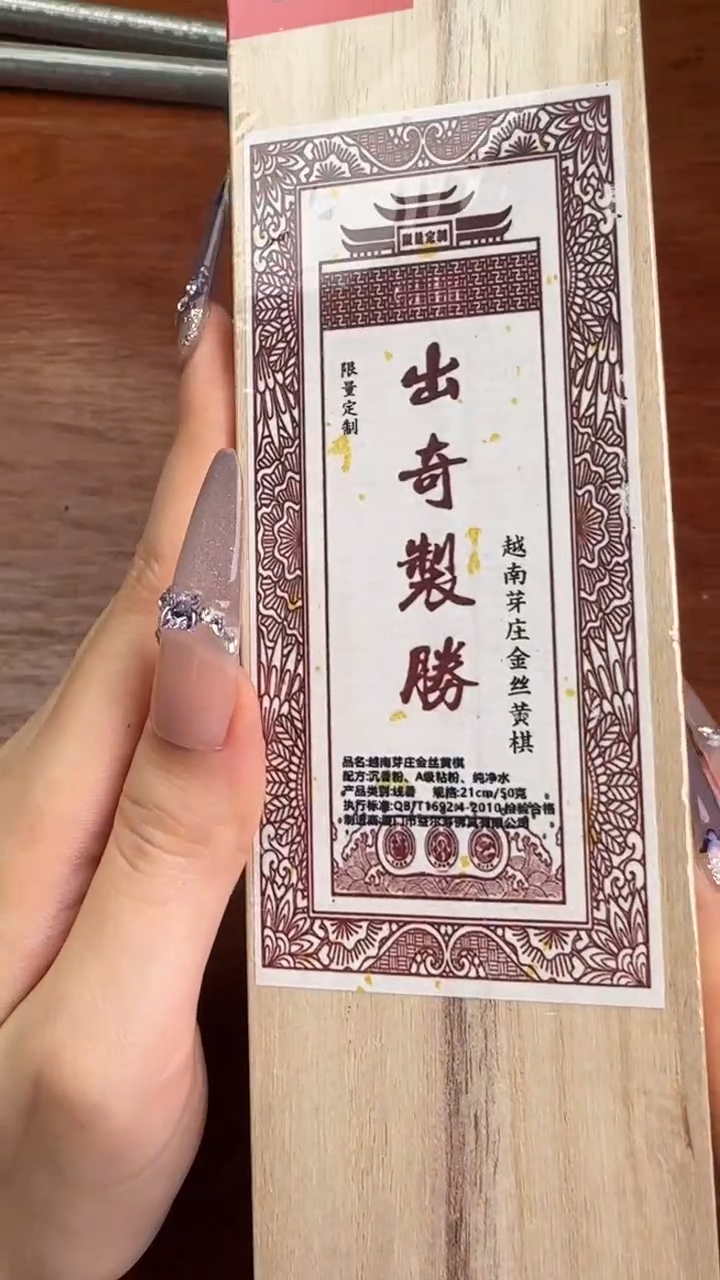 限量定制
出奇製勝
限量定制
越南芽庄金丝黄棋
品名:越南芽庄金丝黄棋
配方:沉香粉、A级粘粉、纯净水
产品类别:线香 规格:21cm/50克
执行标准:QB/T1692.4-2010 检验合格
制造商:厦门市
有限公司